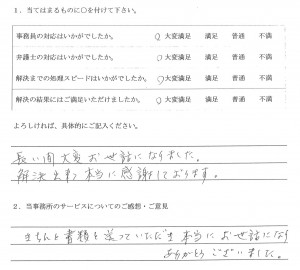 1．当てはまるものに○を付けて下さい。
事務員の対応はいかがでしたか。 ○ 大変満足 満足 普通 不満
弁護士の対応はいかがでしたか。 ○ 大変満足 満足 普通 不満
解決までの処理スピードはいかがでしたか。 ○ 大変満足 満足 普通 不満
解決の結果にはご満足いただけましたか。 ○ 大変満足 満足 普通 不満
よろしければ、具体的にご記入ください。
長い間大変お世話になりました。
解決出来 本当に感謝しております。
2．当事務所のサービスについてのご感想・ご意見
きちんと書類を送っていただき 本当に お世話になり
ありがとうございました。